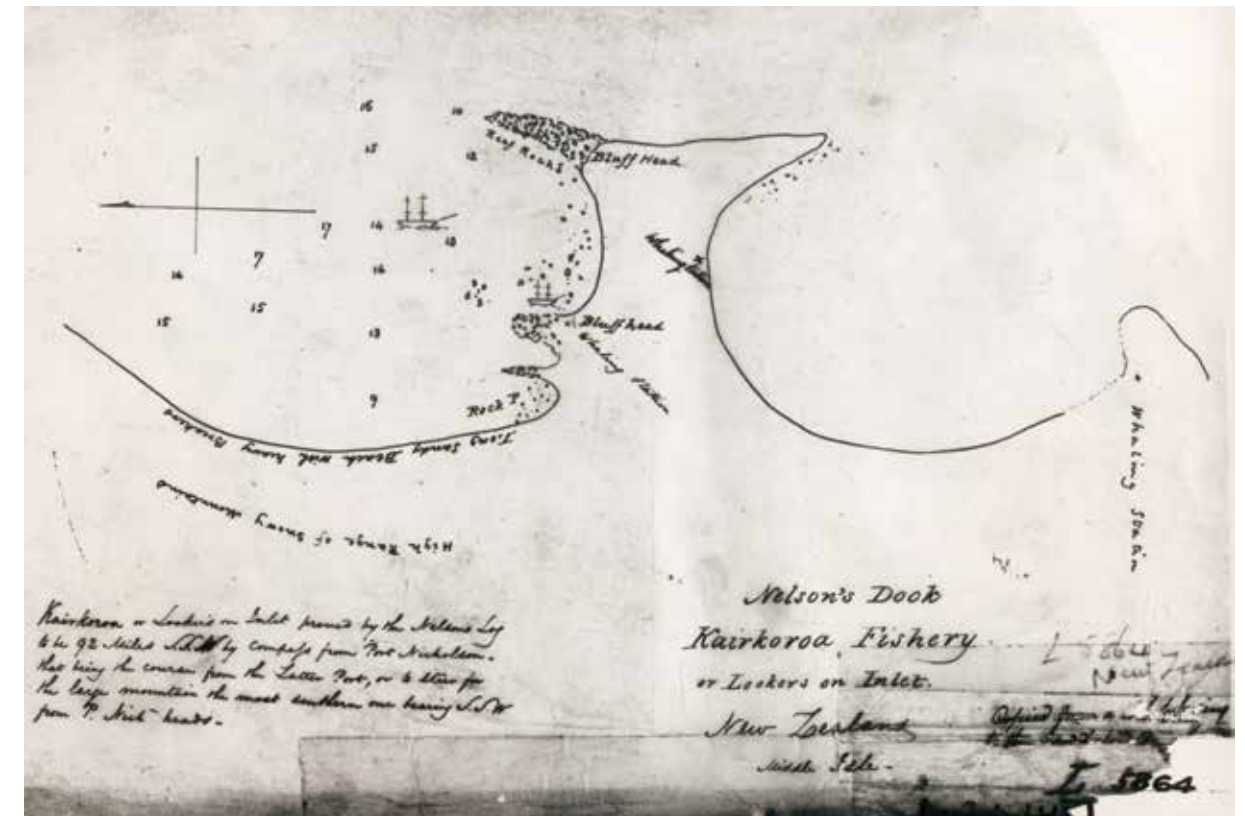 16
10
Reef Rocks
Bluff Head
15
12
17
14
13
7
14
16
15
15
13
Bluff head
Whaling Station
9
Rock Pt
Long Sandy Beach with heavy Breakers
High Range of Snowy Mountains
Whaling Station
Kairkoroa or Lookers on Inlet proved by the Nelsons Log
to be 92 Miles S.S.W by compass from Port Nicholson.
that being the course from the Latter Port, or to steer for
the large mountain the most southern one bearing S.S.W
from P. Nichn heads.-
Nelson's Dock
Kairkoroa Fishery
or Lookers on Inlet.
New Zealand
Middle Isle-
L 5864
New Zealand
Copied from a
L 5864